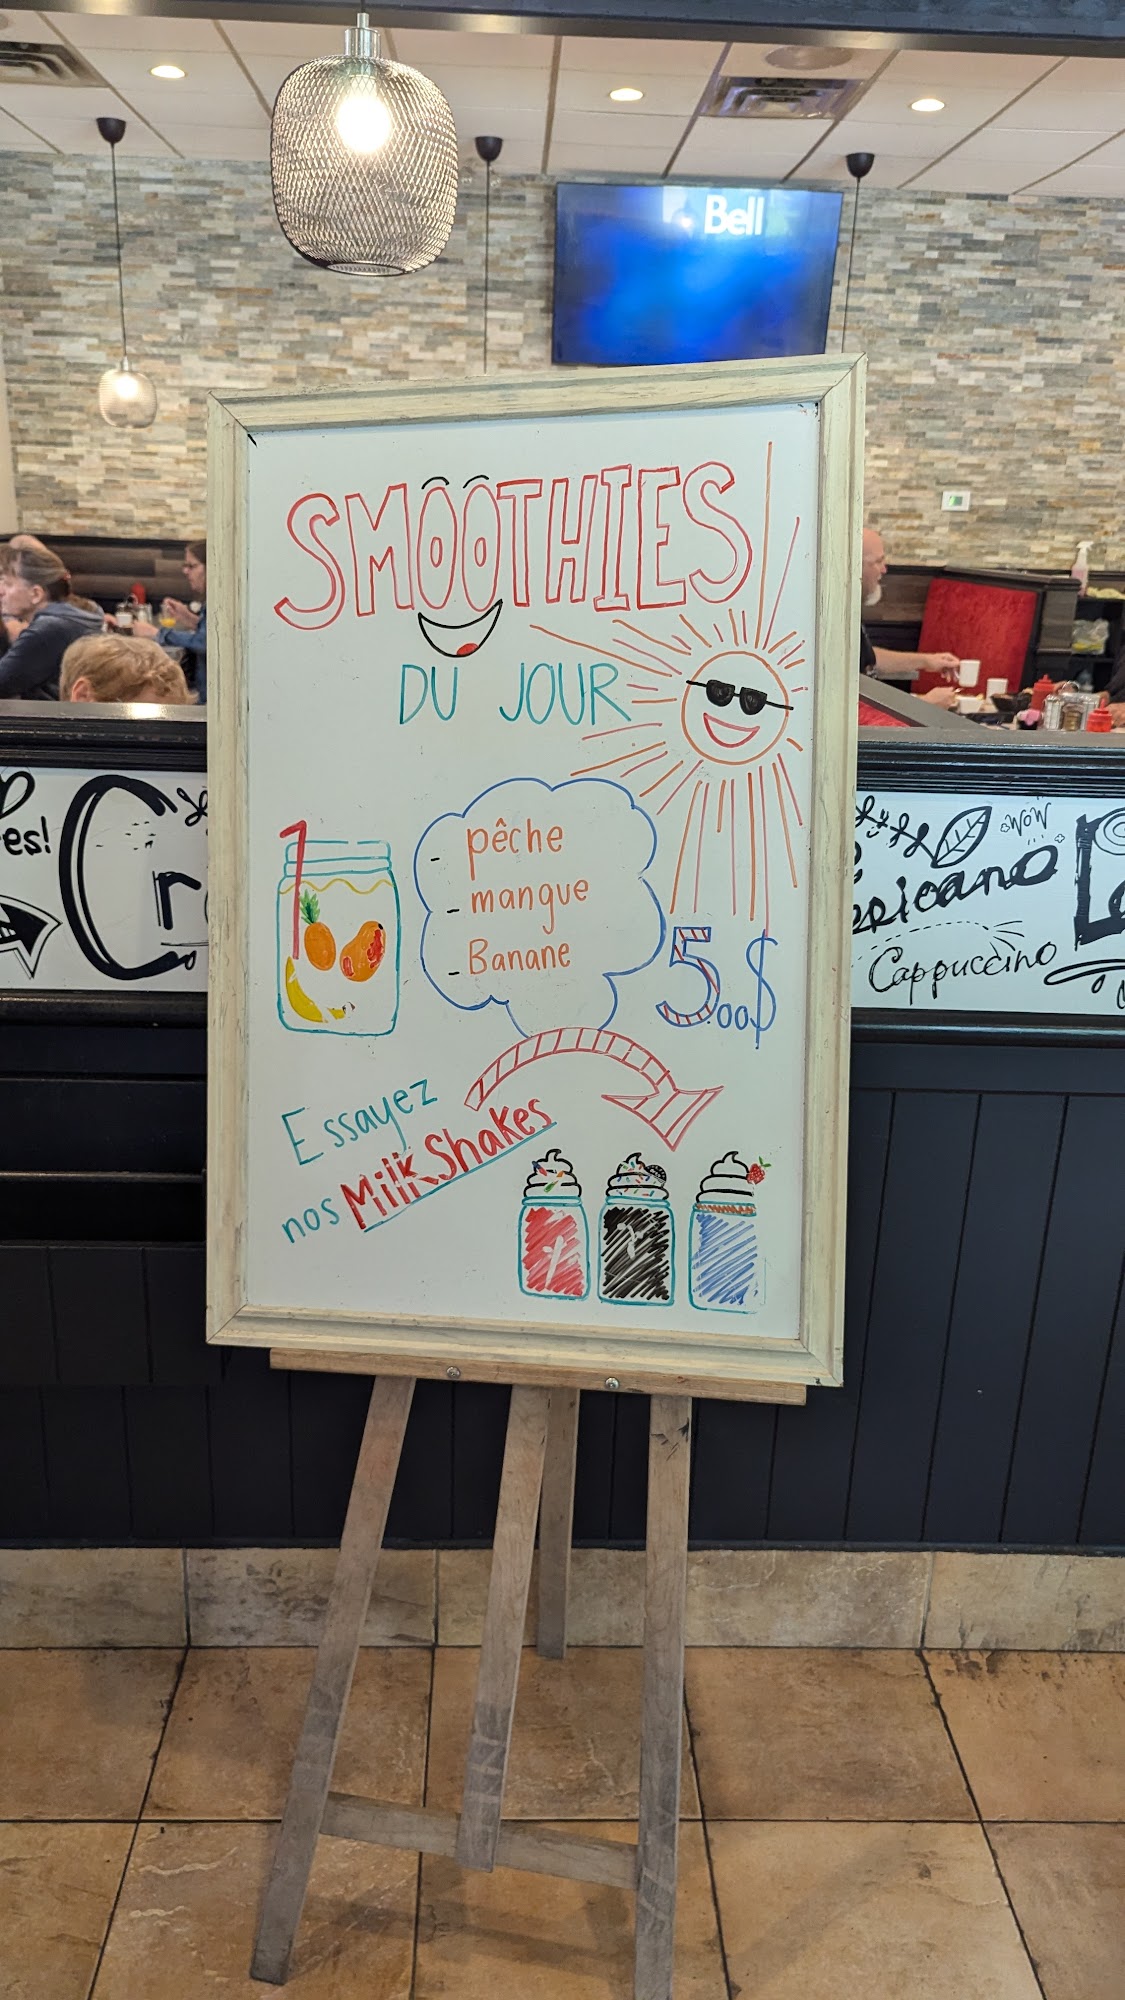 Bell
SMOOTHIES
DU JOUR
- pêche
- mangue
- Banane
5.00$
Essayez
nos MilkShakes
es!
WOW
Cappuccino